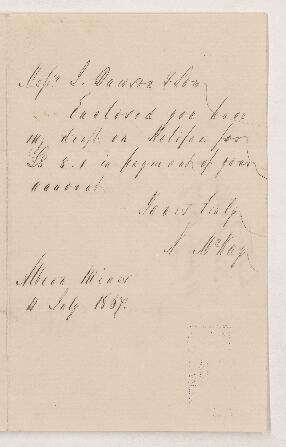 Messrs J. Dawson & Son
Enclosed you have
my draft on Halifax for
8.1 in payment of your
account
Yours truly
N McKay
Albion Mines
11 July 1867.